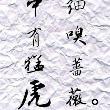 心有猛虎
细嗅蔷薇。